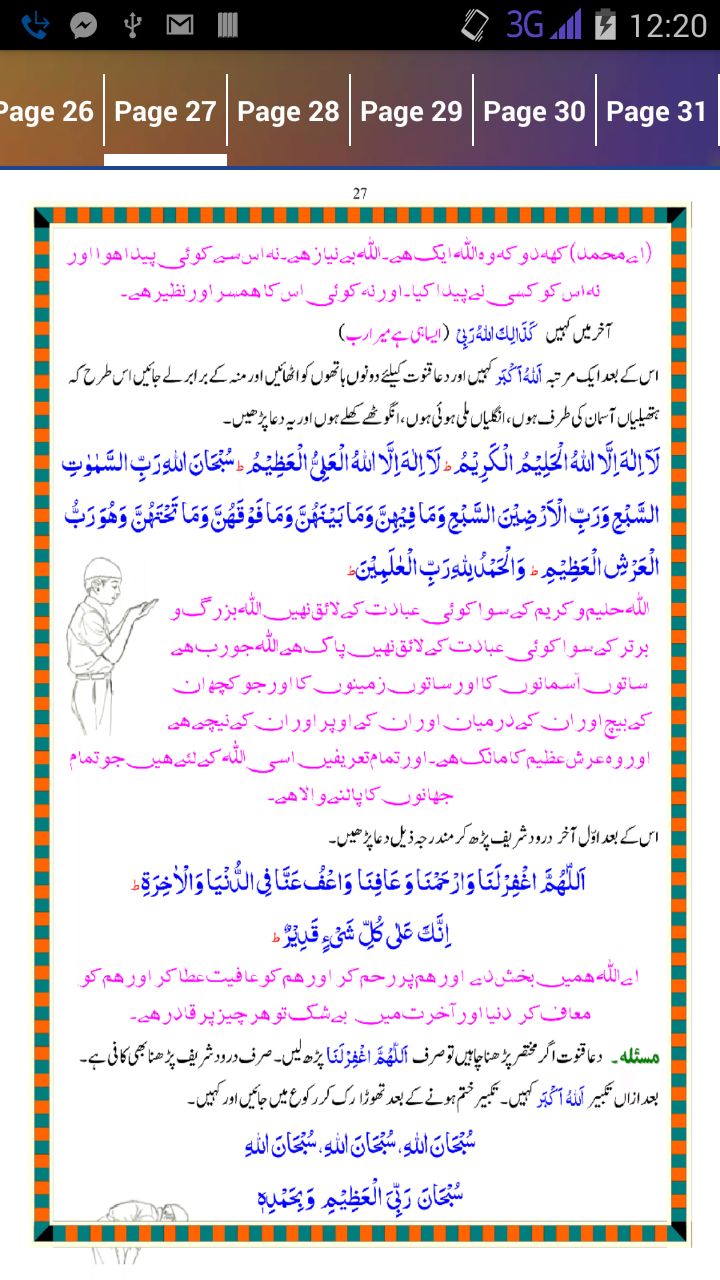 3G 12:20
Page 26 Page 27 Page 28 Page 29 Page 30 Page 31
27
(اے محمد) کہہ دو کہ وہ اللہ ایک ہے۔ اللہ بے نیاز ہے۔ نہ اس سے کوئی پیدا ہوا اور
نہ اس کو کسی نے پیدا کیا۔ اور نہ کوئی اس کا ہمسر اور نظیر ہے۔
آخر میں کہیں كَذَالِكَ اللهُ رَبِّيْ (ایسا ہی ہے میرا رب)
اس کے بعد ایک مرتبہ اَللهُ اَكْبَر کہیں اور دعا قنوت کیلئے دونوں ہاتھوں کو اٹھائیں اور منہ کے برابر لے جائیں اس طرح کہ
ہتھیلیاں آسمان کی طرف ہوں، انگلیاں ملی ہوئی ہوں، انگوٹھے کھلے ہوں اور یہ دعا پڑھیں۔
لَآ اِلٰهَ اِلَّا اللهُ الْحَلِيْمُ الْكَرِيْمُ ط لَآ اِلٰهَ اِلَّا اللهُ الْعَلِيُّ الْعَظِيْمُ ط سُبْحَانَ اللهِ رَبِّ السَّمٰوٰتِ
السَّبْعِ وَرَبِّ الْاَرْضِيْنَ السَّبْعِ وَمَا فِيْهِنَّ وَمَا بَيْنَهُنَّ وَمَا فَوْقَهُنَّ وَمَا تَحْتَهُنَّ وَهُوَ رَبُّ
الْعَرْشِ الْعَظِيْمِ ط وَالْحَمْدُ لِلهِ رَبِّ الْعٰلَمِيْنَ ط
اللہ حلیم و کریم کے سوا کوئی عبادت کے لائق نہیں اللہ بزرگ و
برتر کے سوا کوئی عبادت کے لائق نہیں پاک ہے اللہ جو رب ہے
ساتوں آسمانوں کا اور ساتوں زمینوں کا اور جو کچھ ان
کے بیچ اور ان کے درمیان اور ان کے اوپر اور ان کے نیچے ہے
اور وہ عرش عظیم کا مالک ہے۔ اور تمام تعریفیں اسی اللہ کے لئے ہیں جو تمام
جہانوں کا پالنے والا ہے۔
اس کے بعد اوّل آخر درود شریف پڑھ کر مندرجہ ذیل دعا پڑھیں۔
اَللّٰهُمَّ اغْفِرْ لَنَا وَارْحَمْنَا وَعَافِنَا وَاعْفُ عَنَّا فِى الدُّنْيَا وَالْاٰخِرَةِ ط
اِنَّكَ عَلٰى كُلِّ شَىْءٍ قَدِيْرٌ ط
اے اللہ ہمیں بخش دے اور ہم پر رحم کر اور ہم کو عافیت عطا کر اور ہم کو
معاف کر دنیا اور آخرت میں بے شک تو ہر چیز پر قادر ہے۔
مسئلہ۔ دعا قنوت اگر مختصر پڑھنا چاہیں تو صرف اَللّٰهُمَّ اغْفِرْ لَنَا پڑھ لیں۔ صرف درود شریف پڑھنا بھی کافی ہے۔
بعد ازاں تکبیر اَللهُ اَكْبَر کہیں۔ تکبیر ختم ہونے کے بعد تھوڑا رک کر رکوع میں جائیں اور کہیں۔
سُبْحَانَ اللهِ، سُبْحَانَ اللهِ، سُبْحَانَ اللهِ
سُبْحَانَ رَبِّيَ الْعَظِيْمِ وَبِحَمْدِهٖ